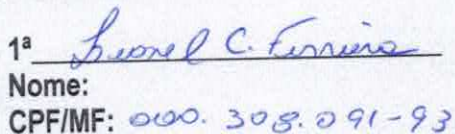 1ª Leonel C. Ferreira
Nome:
CPF/MF: 000.308.091-93